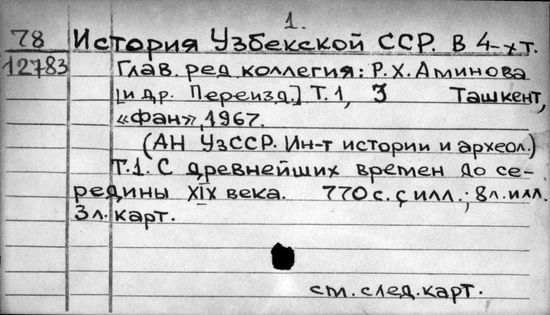 1.
78 История Узбекской ССР. В 4-х т.
12783 Глав. ред. коллегия: Р. Х. Аминова
[и др. Переизд.] Т. 1, 3 Ташкент,
«Фан», 1967.
(АН УзССР. Ин-т истории и археол.)
Т.1. С древнейших времен до се-
редины XIX века. 770 с. с илл.; 8 л. илл.
3 л. карт.
см. след. карт.